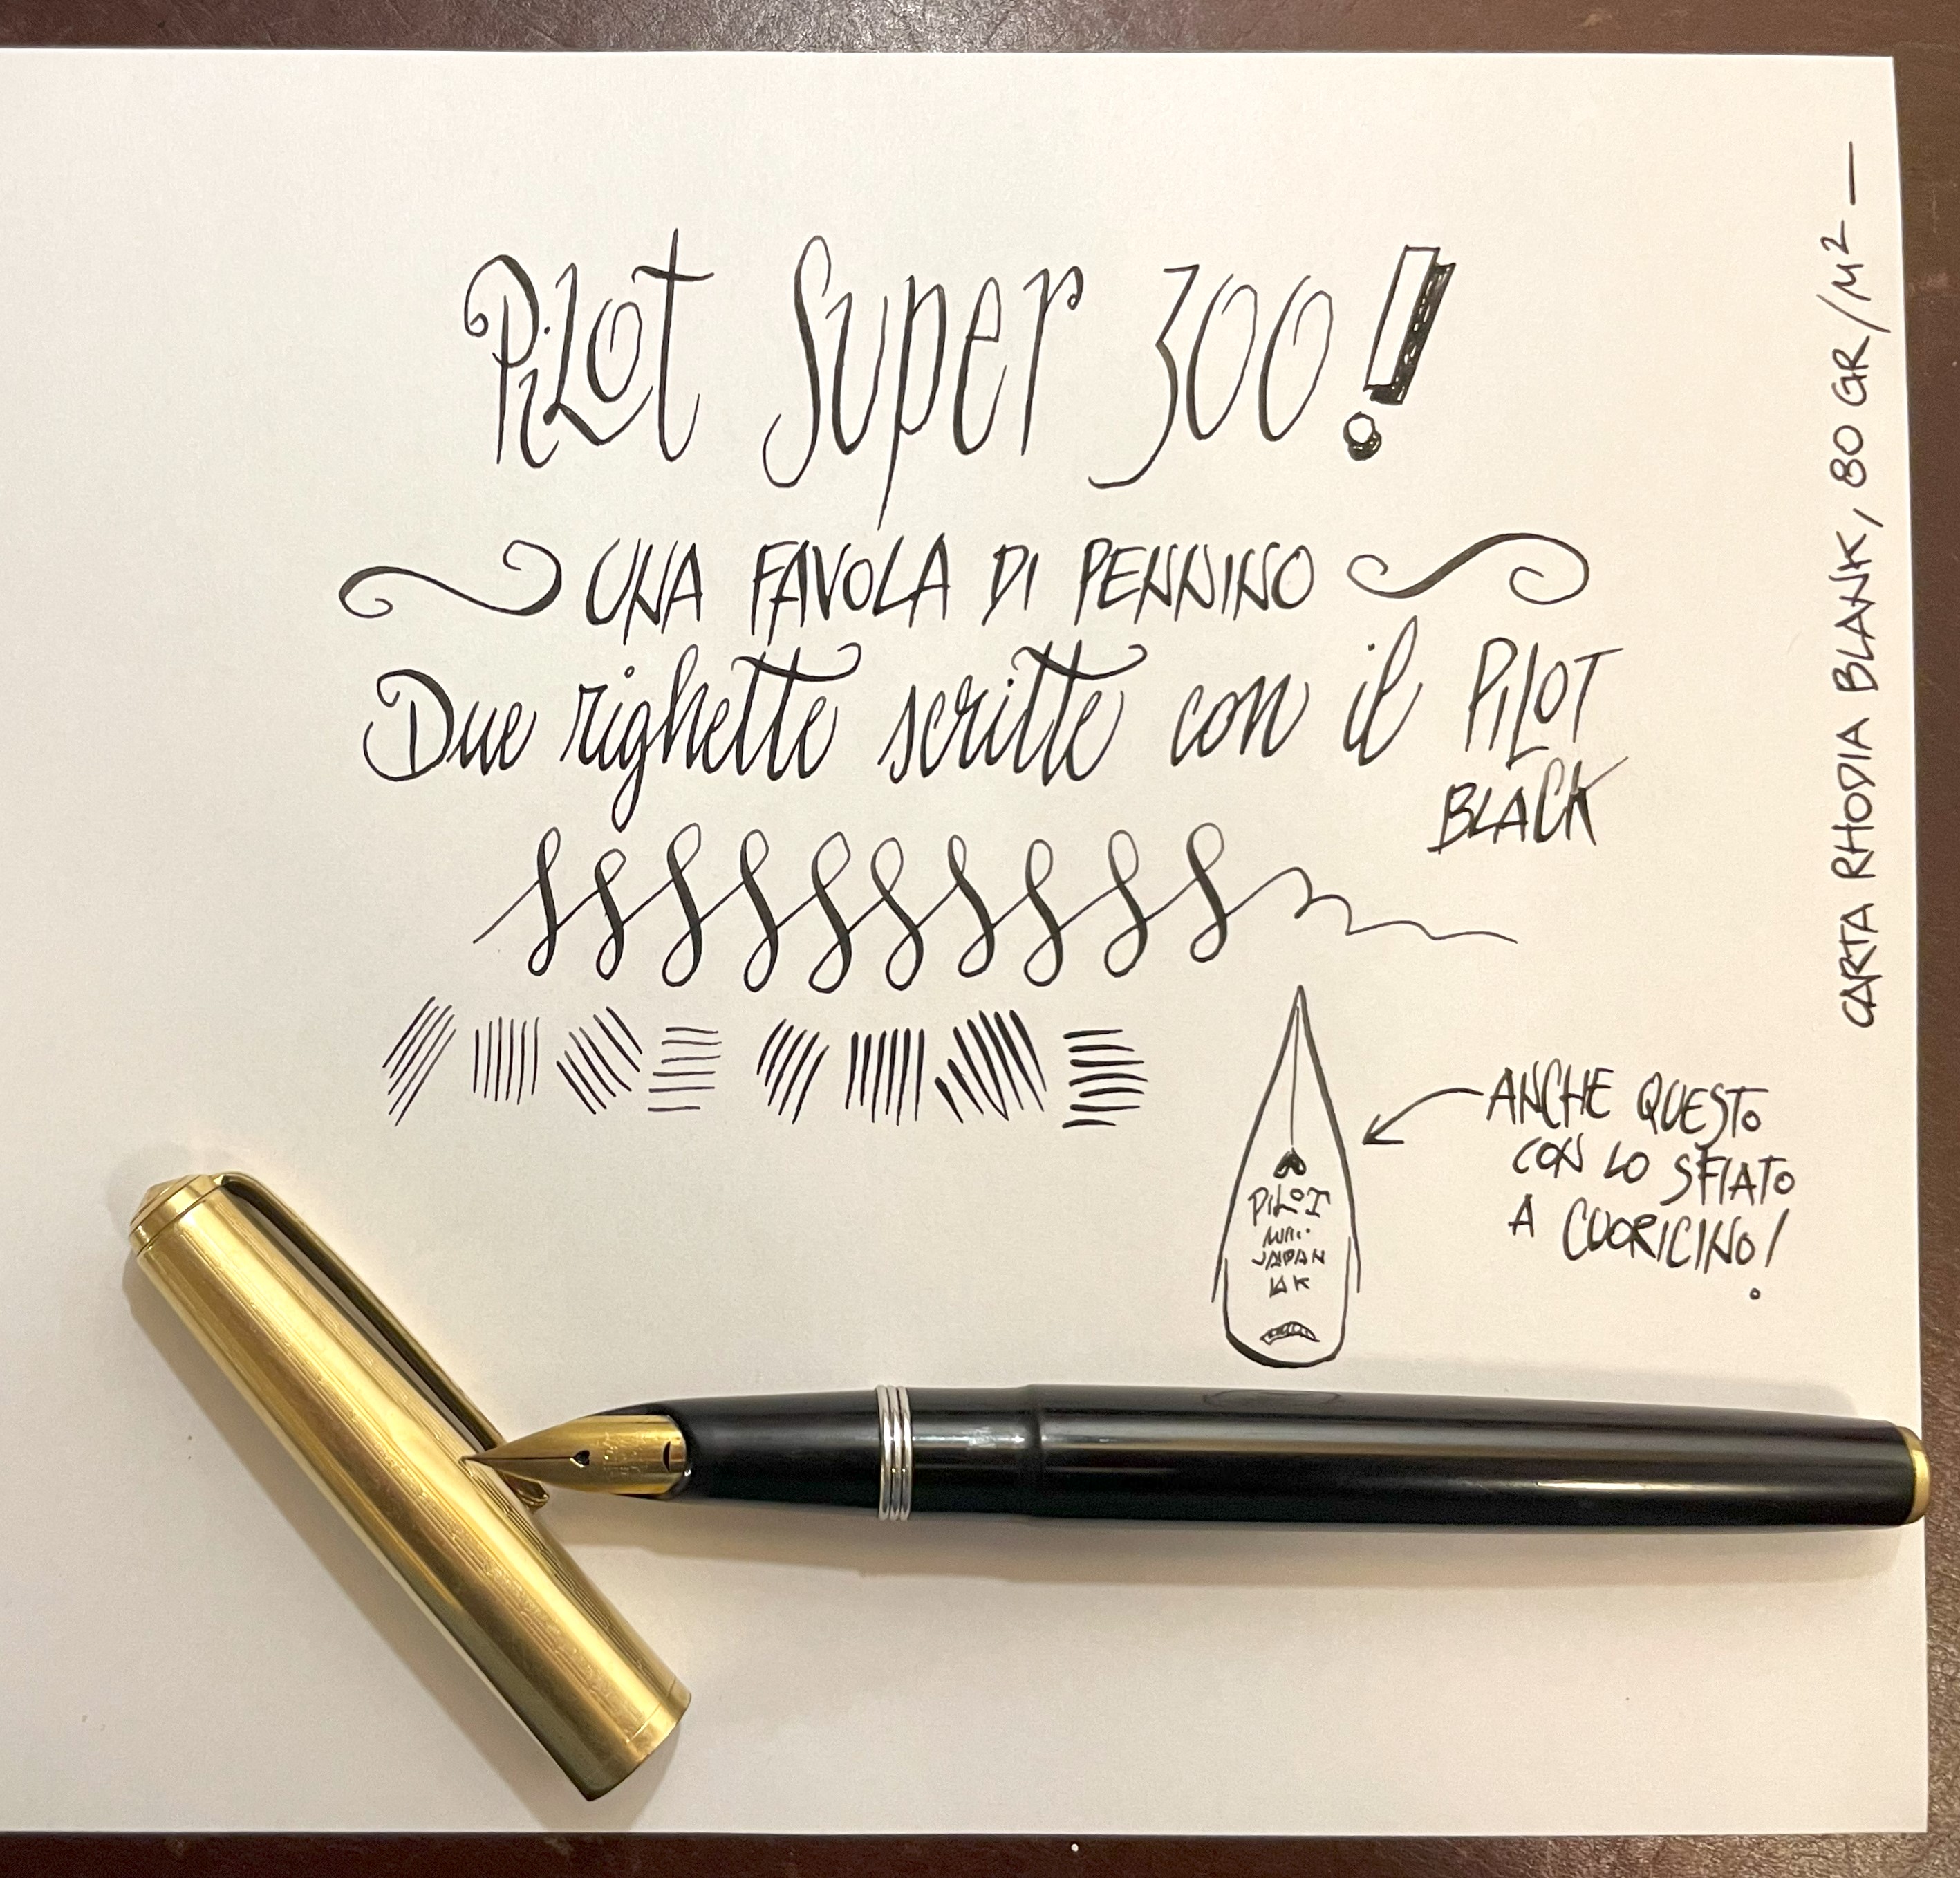 PiLOT Super 300!
UNA FAVOLA DI PENNINO
Due righette scritte con il PiLOT
BLACK
ANCHE QUESTO
CON LO SFIATO
A CUORICINO!
PiLOT
JAPAN
14K
CARTA RHODIA BLANK, 80 GR/M² —